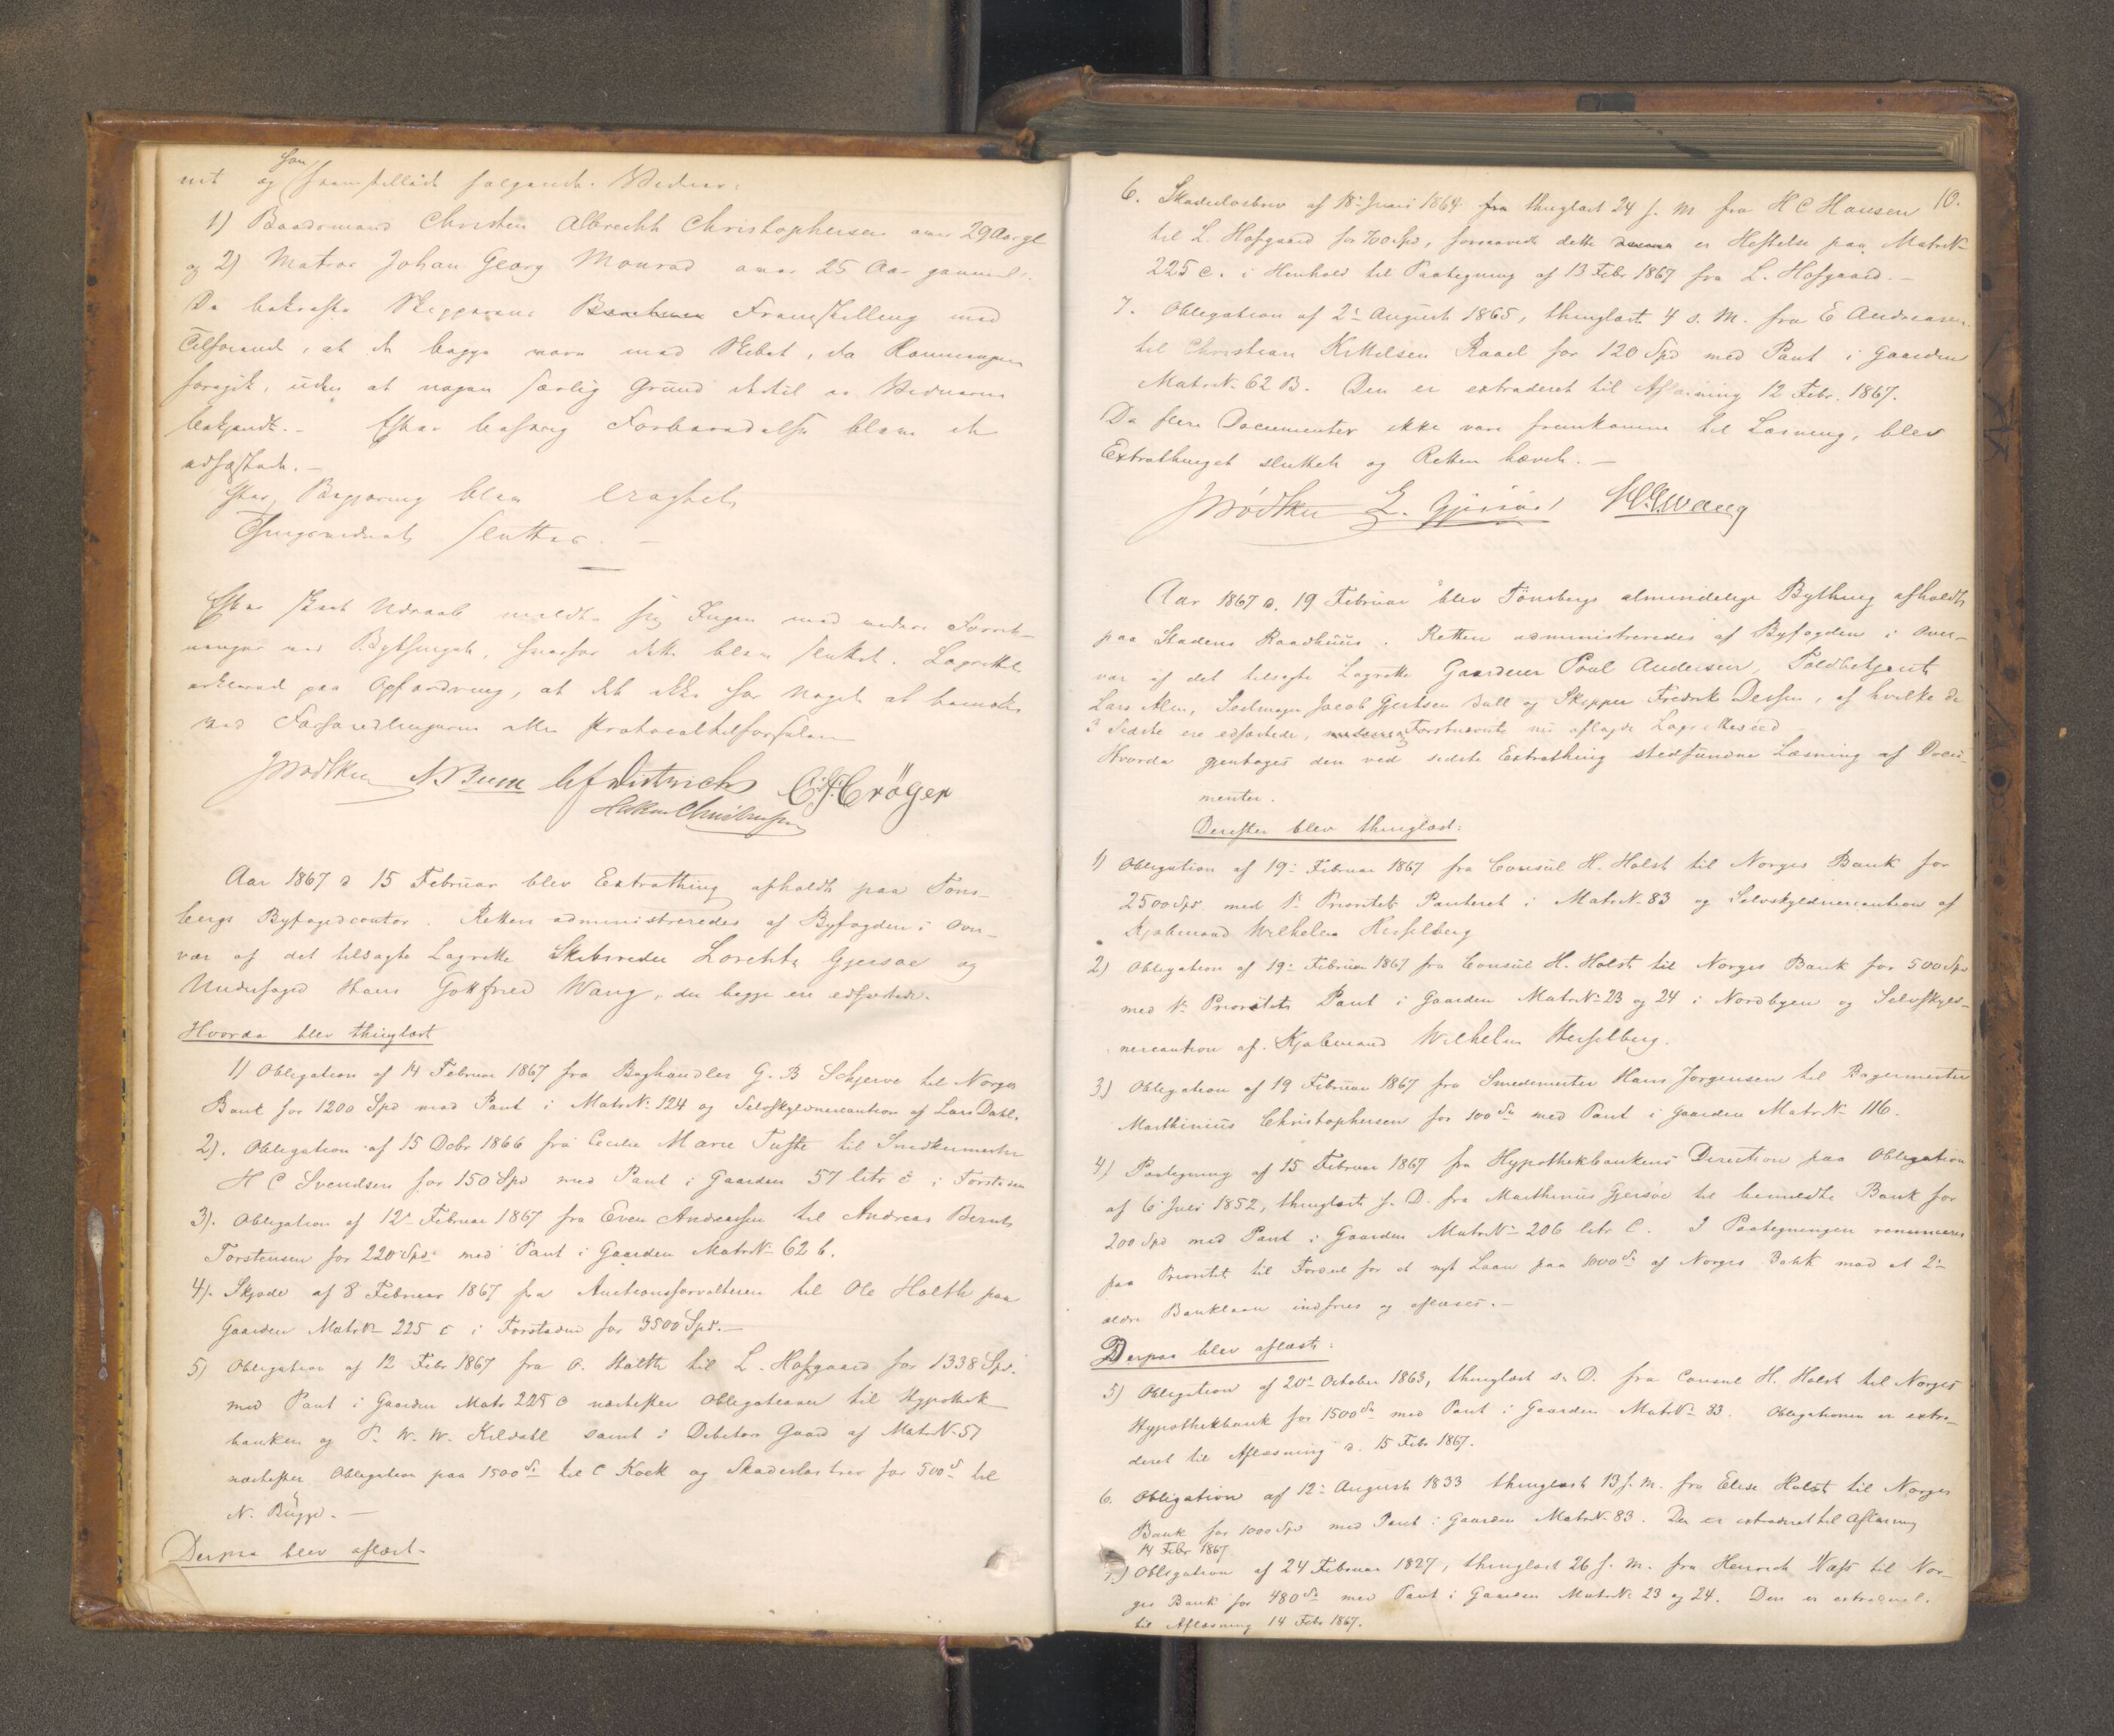 og han fremstillede følgende Vidner:
1) Baadsmand Christen Albrecht Christophersen over 29 Aar gl
og 2) Matros Johan Georg Monrad over 25 Aar gammel.
De bekræfte Skipperens Fremstilling med
Tilføiende, at de begge vare med Skibet, da Rømningen
foregik, uden at nogen særlig Grund dertil er Vidnerne
bekjendt. – Efter behørig Forberedelse bleve de
edfæstede. –
Efter Begjæring bleve
Thingsvidnet sluttes. –
Efter skeet Udraab meldte sig Ingen med videre Forret-
ninger ved Bythinget, hvorfor dette blev sluttet. Lagrettet
erklæred paa Opfordring, at det ikke har noget at bemærke
ved Forhandlingerne eller Protocoltilførselen
C. F. Crøger
Aar 1867 d 15 Februar blev Extrathing afholdt paa Töns-
bergs Byfogedcontor. Retten administreredes af Byfogden i Over-
vær af det tilsagte Lagrette Skibsreder Lorentz Gjersøe og
Underfoged Hans Gottfried Wang, der begge ere edfæstede.
Hvorda blev thinglæst
1) Obligation af 14 Februar 1867 fra Boghandler G. B Schjerve til Norges
Bank for 1200 Spd med Pant i Matr. N. 124 og Selvskyldnercaution af Lars Dahl.
2). Obligation af 15 Decbr 1866 fra Cecilie Marie Tufte til Snedkermester
H C Svendsen for 150 Spd med Pant i Gaarden 57 litr c i Forstaden
3). Obligation af 12 Februar 1867 fra Even Andreassen til Andreas Bernts
Torstensen for 220 Spd med Pant i Gaarden Matr N 62 b.
4). Skjøde af 8 Februar 1867 fra Auctionsforvalteren til Ole Holth paa
Gaarden Matr N 225 c i Forstaden for 3500 Spd. –
5) Obligation af 12 Febr 1867 fra O. Holth til L. Hofgaard for 1338 Spd.
med Pant i Gaarden Matr 225 c næstefter Obligationer til Hypothek
banken og P. W. W. Kildahl samt i Debitors Gaard af Matr. N. 57
næstefter Obligation paa 1500 Sp til C Kock og Skadesløsbrev for 500 Sp til
N. Bugge. –
Derpaa blev aflæst –
10.
6. Skadesløsbrev af 18 Juni 1864 thinglæst 24 s. M fra H C Hansen
til L. Hofgaard for 700 Spd, forsaavidt dette er Heftelse paa Matr. N
225 c. i Henhold til Paategning af 13 Febr 1867 fra L. Hofgaard. –
7. Obligation af 2 August 1865, thinglæst 4 s. M. fra E Andreasen
til Christian Kittelsen Raael for 120 Spd med Pant i Gaarden
Matr. N. 62 B. Den er extraderet til Aflæsning 12 Febr. 1867.
Da flere Documenter ikke vare fremkomne til Læsning, blev
Extrathinget sluttet og Retten hævet. –
L. Gjersøe H. G. Wang
Aar 1867 d. 19 Februar blev Tönsbergs almindelige Bything afholdt
paa Stadens Raadhuus. Retten administreredes af Byfogden i Over-
vær af det tilsagte Lagrette Gaardeier Poul Andersen, Toldbetjent
Lars Alm, Seilmager Jacob Gjertsen Dall og Skipper Fredrik Dessen, af hvilke de
3 Sidste ere edfæstede, Førstnævnte nu aflagde Lagrettesed
Hvorda gjentoges den ved sidste Extrathing stedfundne Læsning af Docu-
menter.
Derefter blev thinglæst:
1) Obligation af 19 Februar 1867 fra Consul H. Holst til Norges Bank for
2500 Spd med 1 Prioritets Panteret i Matr. N. 83 og Selvskyldnercaution af
Kjøbmand Wilhelm Hesselberg
2) Obligation af 19 Februar 1867 fra Consul H. Holst til Norges Bank for 500 Spd
med 1 Prioritets Pant i Gaarden Matr. N. 23 og 24 i Nordbyen og Selvskyld-
nercaution af Kjøbmand Wilhelm Hesselberg.
3) Obligation af 19 Februar 1867 fra Smedemester Hans Jørgensen til Bagermester
Marthinius Christophersen for 100 Sp med Pant i Gaarden Matr. N 116.
4) Paategning af 15 Februar 1867 fra Hypothekbankens Direction paa Obligation
af 6 Juli 1852, thinglæst s. D. fra Marthinius Gjersøe til bemeldte Bank for
200 Spd med Pant i Gaarden Matr N 206 litr C. I Paategningen renunceres
paa Prioritet til Fordel for et nyt Laan paa 1000 Sp af Norges Bank mod at 2
ældre Banklaan indfries og aflæses. –
Derpaa blev aflæst:
5) Obligation af 20 October 1863, thinglæst s. D. fra Consul H. Holst til Norges
Hypothekbank for 1500 Sp med Pant i Gaarden Matr N 83. Obligationen er extra-
deret til Aflæsning d. 15 Febr 1867.
6. Obligation af 12 August 1833 thinglæst 13 s. M. fra Elise Holst til Norges
Bank for 1000 Spd med Pant i Gaarden Matr. N. 83. Den er extraderet til Aflæsning
14 Febr 1867
7) Obligation af 24 Februar 1827, thinglæst 26 s. M. fra Henrich til Nor-
ges Bank for 480 Sp med Pant i Gaarden Matr. N. 23 og 24. Den er extraderet
til Aflæsning 14 Febr 1867.